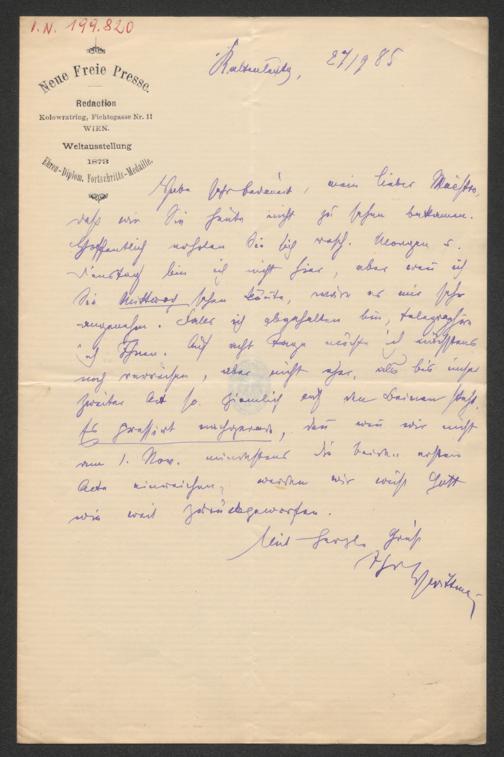 I.N. 199.820
Neue Freie Presse.
Redaction
Kolowratring, Fichtegasse Nr. 11
WIEN.
Weltausstellung
1873
Ehren-Diplom. Fortschritts-Medaille.
Kaltenleutg, 27/9 85
Habe sehr bedauert, mein lieber Maestro,
daß wir Sie heute nicht zu sehen bekamen.
Hoffentlich erholen Sie sich rasch. Morgen u.
Dienstag bin ich nicht hier, aber wenn ich
Sie Mittwoch sehen könnte, wäre es mir sehr
angenehm. Falls ich abgehalten bin, telegraphire
ich Ihnen. Auf acht Tage möchte ich nächstens
noch verreisen, aber nicht eher, als bis unser
zweiter Act so ziemlich auf den Beinen steht.
Es pressirt, denn wenn wir nicht
am 1. Nov. mindestens die beiden ersten
Acte einreichen, werden wir weiß Gott
wie weit zurückgeworfen.
Mit herzl. Gruß
Ihr Wittmann